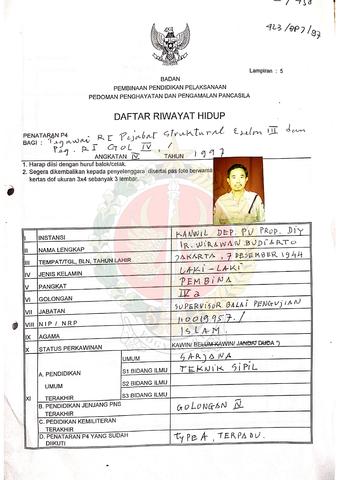 423/BP7/87
Lampiran : 5
BADAN
PEMBINAAN PENDIDIKAN PELAKSANAAN
PEDOMAN PENGHAYATAN DAN PENGAMALAN PANCASILA
DAFTAR RIWAYAT HIDUP
PENATARAN P4
BAGI : Pegawai RI Pejabat Struktural Eselon III dan
Peg. RI GOL IV /
ANGKATAN IV, TAHUN 1997
1. Harap diisi dengan huruf balok/cetak.
2. Segera dikembalikan kepada penyelenggara disertai pas foto berwarna
kertas dof ukuran 3x4 sebanyak 3 lembar.
I INSTANSI KANWIL DEP. PU PROP. DIY
II NAMA LENGKAP Ir. WIRAWAN BUDIARTO
III TEMPAT/TGL, BLN, TAHUN LAHIR JAKARTA, 7 DESEMBER 1944
IV JENIS KELAMIN LAKI-LAKI
V PANGKAT PEMBINA
VI GOLONGAN IV a
VII JABATAN SUPERVISOR BALAI PENGUJIAN
VIII NIP / NRP 110019957. /
IX AGAMA ISLAM.
X STATUS PERKAWINAN KAWIN/ BELUM KAWIN/ JANDA/ DUDA *)
XI A. PENDIDIKAN UMUM TERAKHIR UMUM SARJANA
S1 BIDANG ILMU TEKNIK SIPIL
S2 BIDANG ILMU
S3 BIDANG ILMU
B. PENDIDIKAN JENJANG PNS TERAKHIR GOLONGAN IV
C. PEDIDIKAN KEMILITERAN TERAKHIR
D. PENATARAN P4 YANG SUDAH DIIKUTI TYPE A, TERPADU.